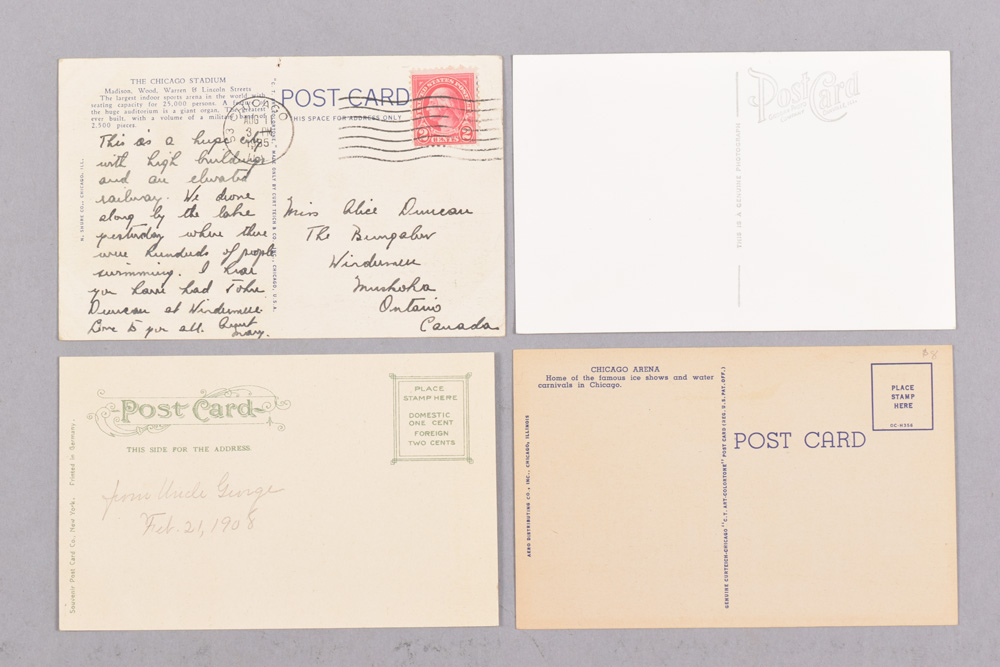 THE CHICAGO STADIUM
Madison, Wood, Warren & Lincoln Streets
The largest indoor sports arena in the world with
seating capacity for 25,000 persons. A feature of
the huge auditorium is a giant organ, the greatest
ever built, with a volume of a military band of
2,500 pieces.
This is a huge city
with high buildings
and an elevated
railway. We drove
along by the lake
yesterday where there
were hundreds of people
swimming. I hear
you have had John
Duncan at Windermere
Love to you all. Aunt
Mary.
H. SHURE CO., CHICAGO, ILL.
MADE ONLY BY CURT TEICH & CO., INC., CHICAGO, U.S.A.
CHICAGO
AUG 1
3 PM
1935
POST CARD
THIS SPACE FOR ADDRESS ONLY
UNITED STATES POSTAGE
2 CENTS 2
Miss Alice Duncan
The Bungalow
Windermere
Muskoka
Ontario
Canada
Post Card
THIS IS A GENUINE PHOTOGRAPH
Post Card
THIS SIDE FOR THE ADDRESS.
PLACE
STAMP HERE
DOMESTIC
ONE CENT
FOREIGN
TWO CENTS
Souvenir Post Card Co., New York. Printed in Germany.
from Uncle George
Feb. 21, 1908
$8
CHICAGO ARENA
Home of the famous ice shows and water
carnivals in Chicago.
PLACE
STAMP
HERE
OC-H356
POST CARD
AERO DISTRIBUTING CO., INC., CHICAGO, ILLINOIS
GENUINE CURTEICH-CHICAGO "C.T. ART-COLORTONE" POST CARD (REG. U.S. PAT. OFF.)